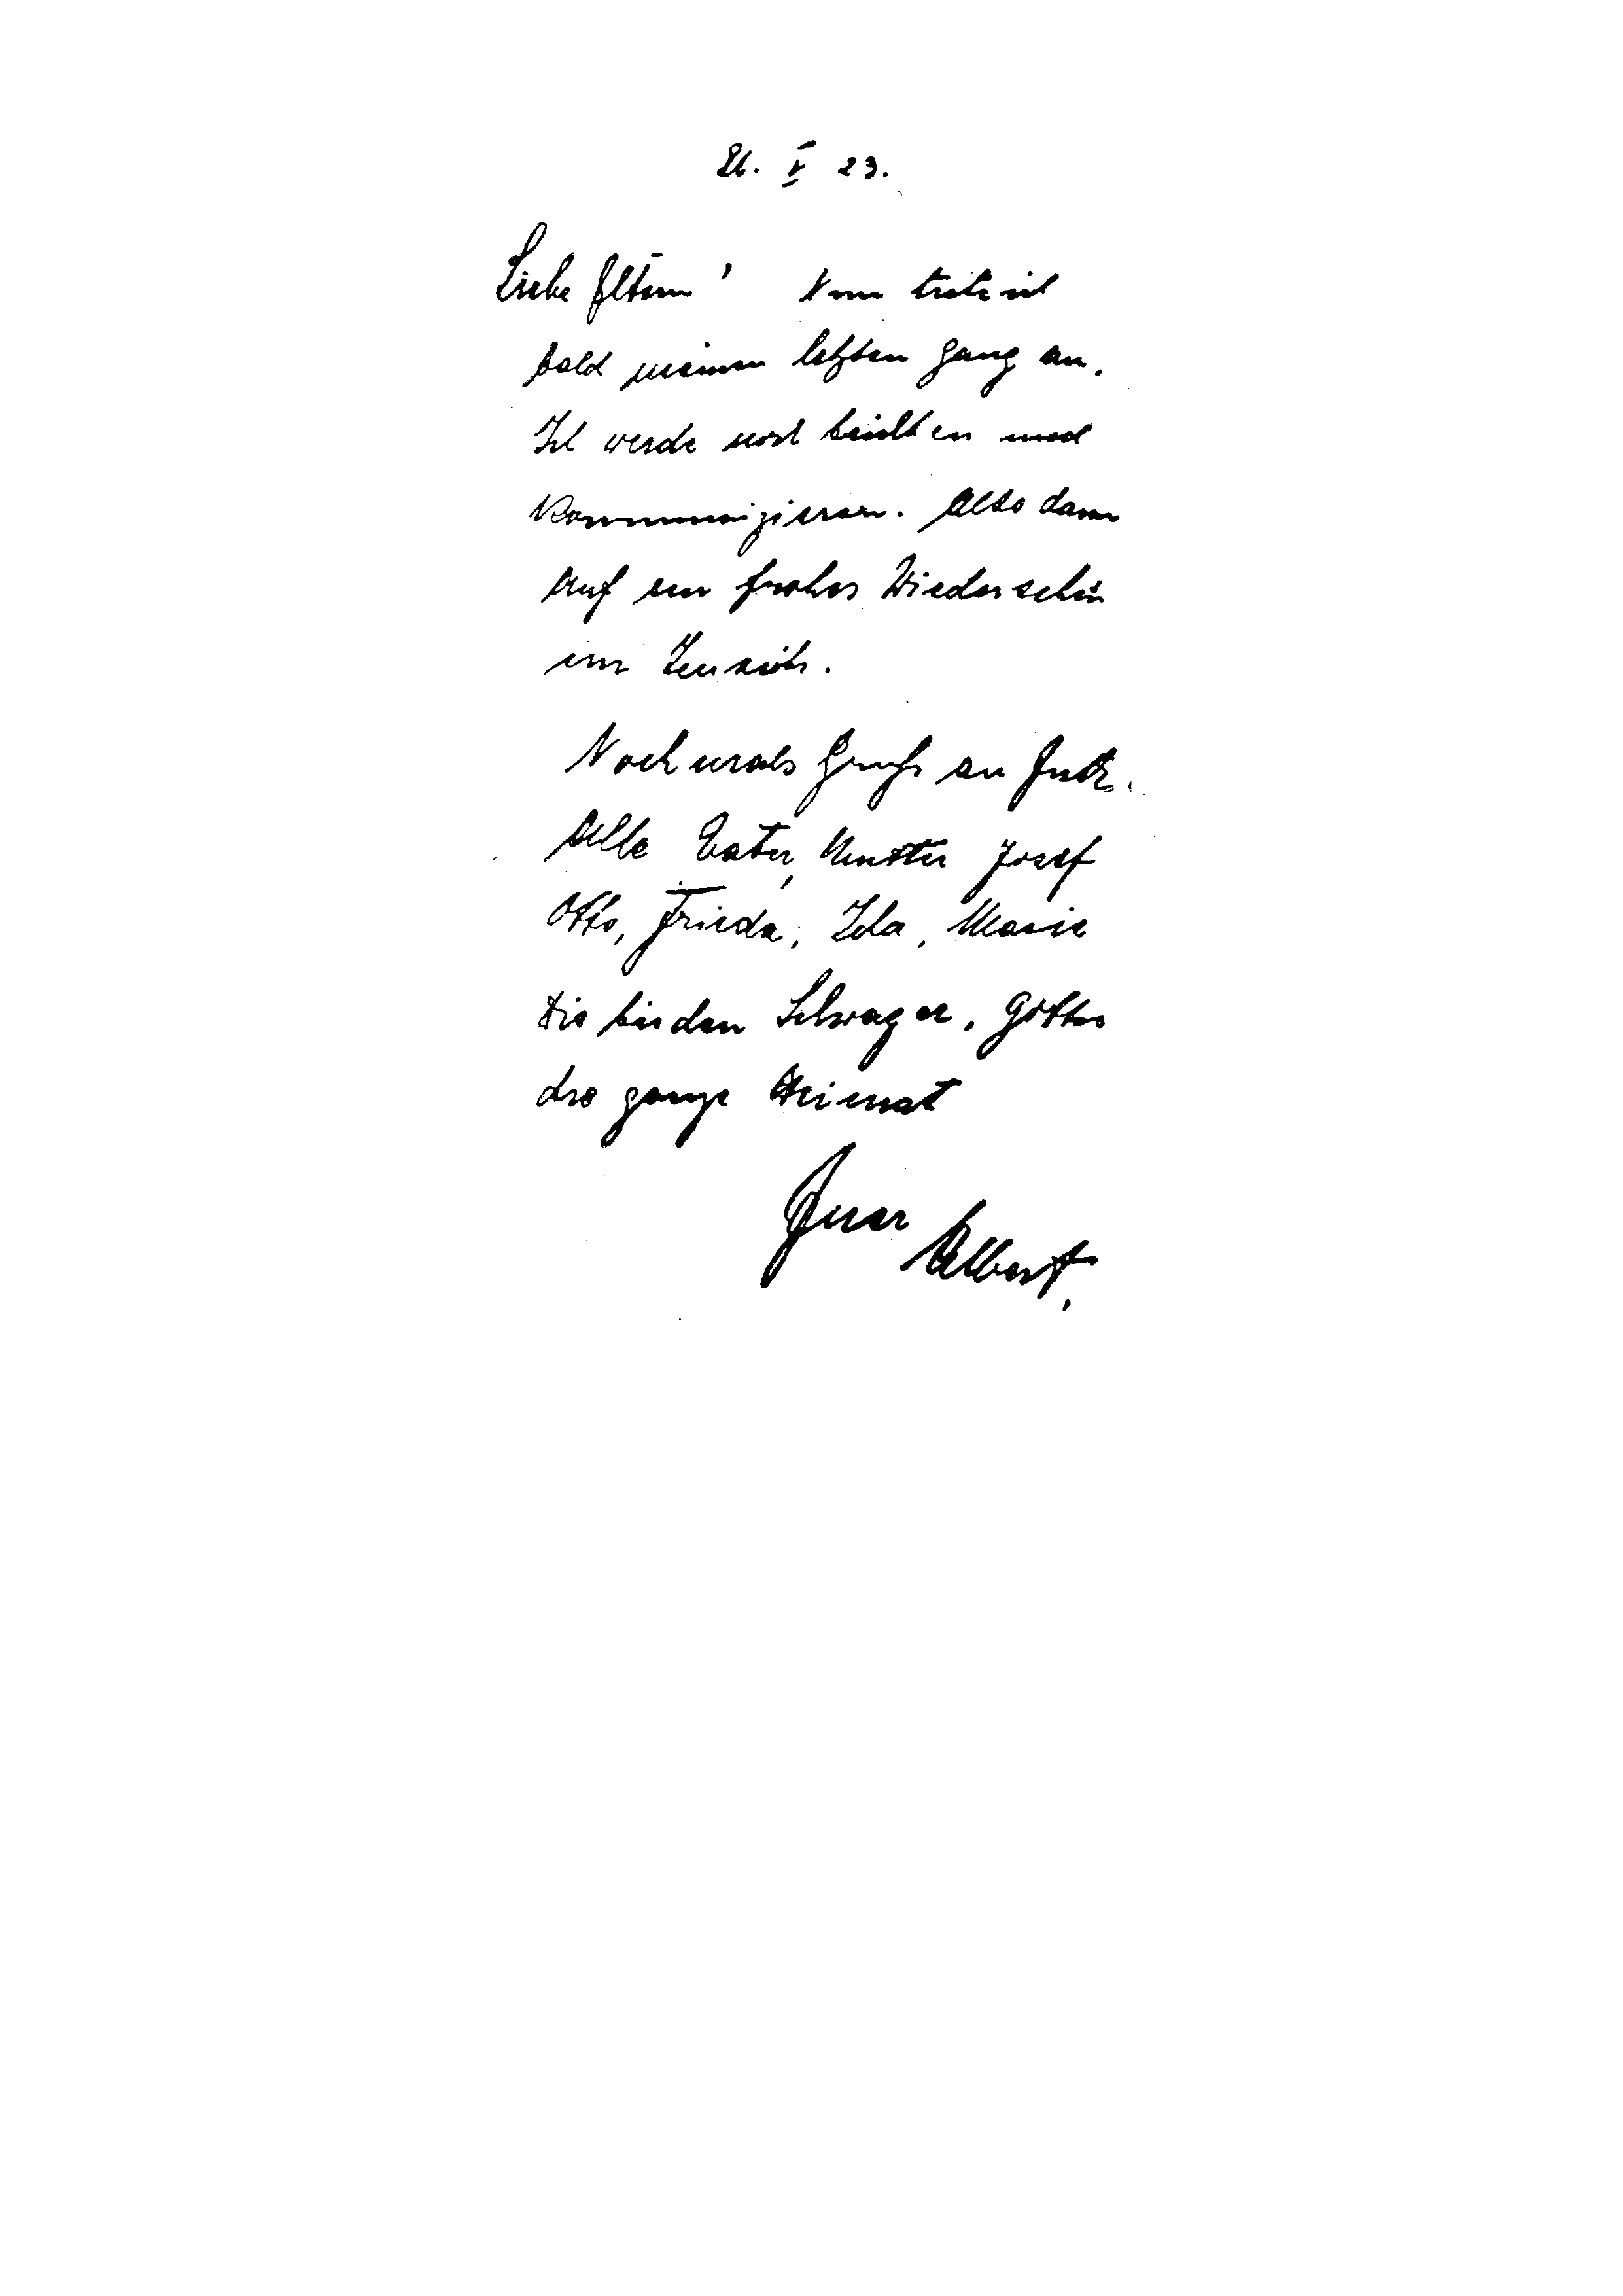 26. V 23.
Liebe Eltern! Nun trete ich
bald meinen letzten Gang an.
Ich werde noch beichten und
Kommunizieren. Also dann
Auf ein frohes Wiedersehen
im Jenseits.
Nochmals Gruß an Euch.
Alle Vater, Mutter Josef
Otto, Frieda, Ida, Marie
die beiden Schwager,
die ganze Heimat
Euer
Albert.